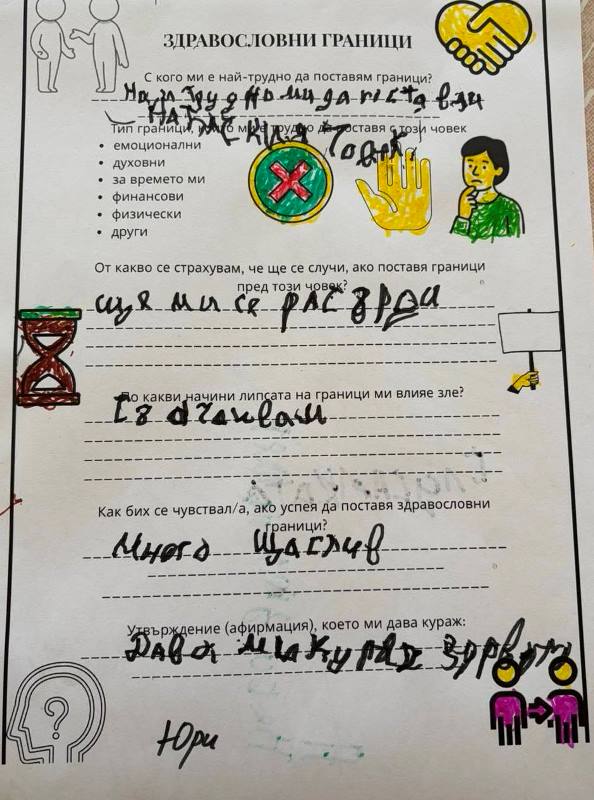 ЗДРАВОСЛОВНИ ГРАНИЦИ
С кого ми е най-трудно да поставям граници?
Най трудно ми да поставям
Тип граници, които ми е трудно да поставя с този човек
• емоционални
• духовни
• за времето ми
• финансови
• физически
• други
От какво се страхувам, че ще се случи, ако поставя граници
пред този човек?
ще ми се
По какви начини липсата на граници ми влияе зле?
Как бих се чувствал/а, ако успея да поставя здравословни
граници?
Много Щаслив
Утвърждение (афирмация), което ми дава кураж:
Дава ми кураж
?
Юри